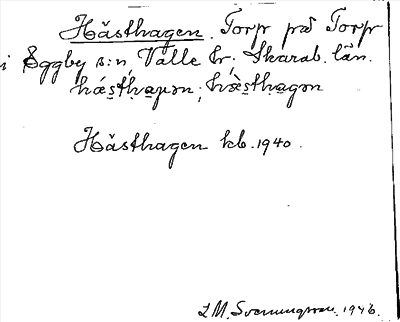 Hästhagen. Torp på Torp
i Eggby s:n, Valle hr, Skarab. län.
hæ̀s̱tḥa̱gən; hæ̀s̱tḥa̱gən
Hästhagen kb. 1940.
L M. Svenungsson. 1946.